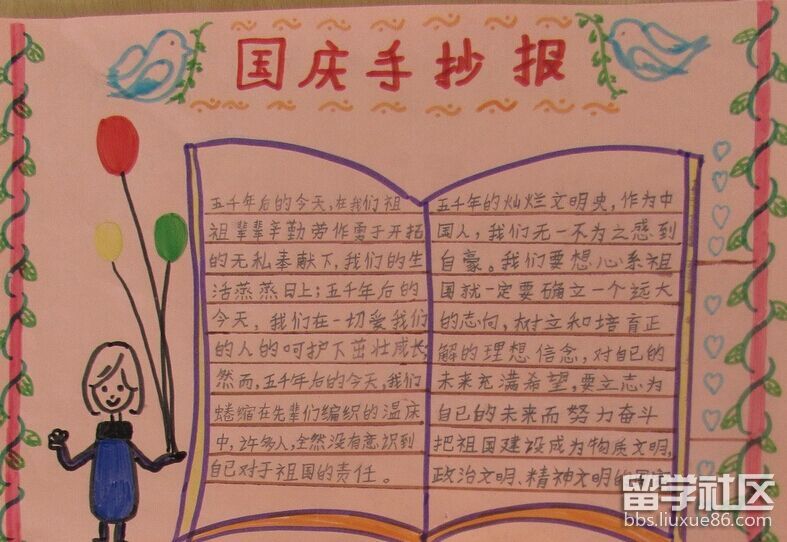 国庆手抄报
五千年后的今天,在我们祖
祖辈辈辛勤劳作勇于开拓
的无私奉献下,我们的生
活蒸蒸日上;五千年后的
今天,我们在一切爱我们
的人的呵护下茁壮成长;
然而,五千年后的今天,我们
蜷缩在先辈们编织的温床
中,许多人,全然没有意识到
自己对于祖国的责任。
五千年的灿烂文明史,作为中
国人,我们无一不为之感到
自豪。我们要想心系祖
国就一定要确立一个远大
的志向,树立和培育正
解的理想信念,对自己的
未来充满希望,要立志为
自己的未来而努力奋斗
把祖国建设成为物质文明,
政治文明、精神文明的
留学社区
bbs.liuxue86.com